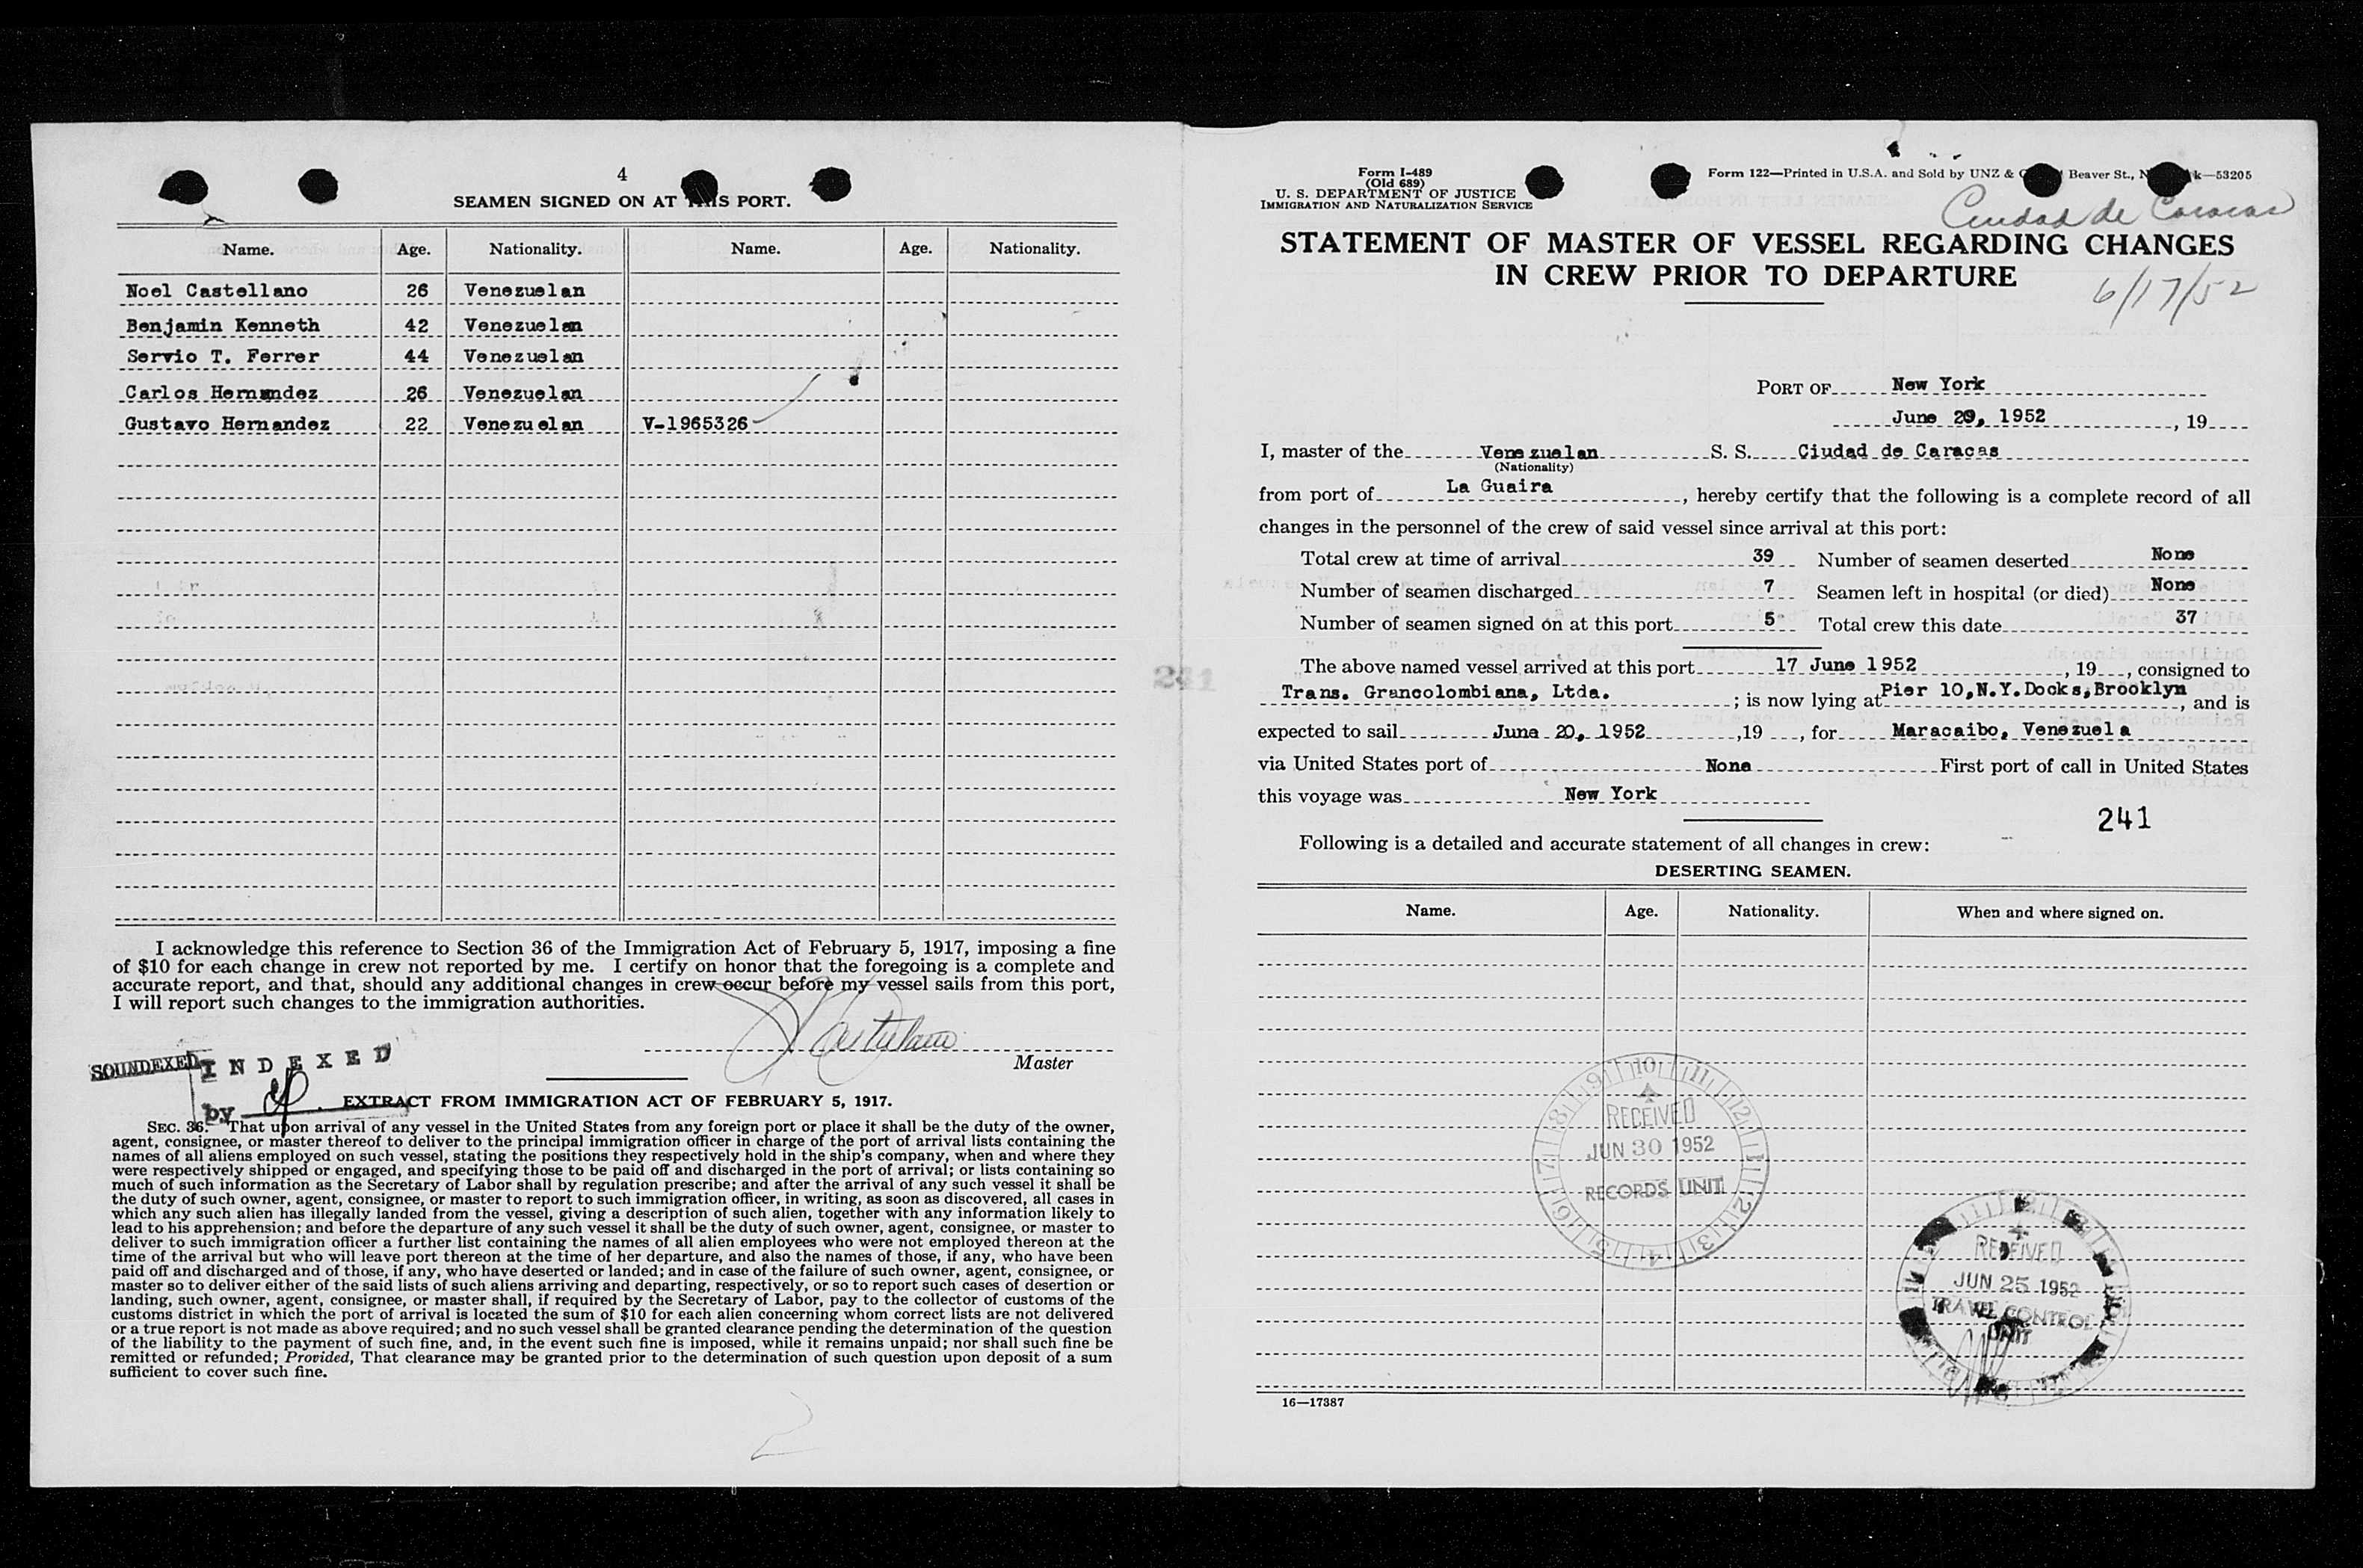 4
SEAMEN SIGNED ON AT THIS PORT.
Name. Age. Nationality. Name. Age. Nationality.
Noel Castellano 26 Venezuelan
Benjamin Kenneth 42 Venezuelan
Servio T. Ferrer 44 Venezuelan
Carlos Hernandez 26 Venezuelan
Gustavo Hernandez 22 Venezuelan V-1965326
I acknowledge this reference to Section 36 of the Immigration Act of February 5, 1917, imposing a fine
of $10 for each change in crew not reported by me. I certify on honor that the foregoing is a complete and
accurate report, and that, should any additional changes in crew occur before my vessel sails from this port,
I will report such changes to the immigration authorities.
Master
SOUNDEXED
INDEXED
by
EXTRACT FROM IMMIGRATION ACT OF FEBRUARY 5, 1917.
SEC. 36. That upon arrival of any vessel in the United States from any foreign port or place it shall be the duty of the owner,
agent, consignee, or master thereof to deliver to the principal immigration officer in charge of the port of arrival lists containing the
names of all aliens employed on such vessel, stating the positions they respectively hold in the ship's company, when and where they
were respectively shipped or engaged, and specifying those to be paid off and discharged in the port of arrival; or lists containing so
much of such information as the Secretary of Labor shall by regulation prescribe; and after the arrival of any such vessel it shall be
the duty of such owner, agent, consignee, or master to report to such immigration officer, in writing, as soon as discovered, all cases in
which any such alien has illegally landed from the vessel, giving a description of such alien, together with any information likely to
lead to his apprehension; and before the departure of any such vessel it shall be the duty of such owner, agent, consignee, or master to
deliver to such immigration officer a further list containing the names of all alien employees who were not employed thereon at the
time of the arrival but who will leave port thereon at the time of her departure, and also the names of those, if any, who have been
paid off and discharged and of those, if any, who have deserted or landed; and in case of the failure of such owner, agent, consignee, or
master so to deliver either of the said lists of such aliens arriving and departing, respectively, or so to report such cases of desertion or
landing, such owner, agent, consignee, or master shall, if required by the Secretary of Labor, pay to the collector of customs of the
customs district in which the port of arrival is located the sum of $10 for each alien concerning whom correct lists are not delivered
or a true report is not made as above required; and no such vessel shall be granted clearance pending the determination of the question
of the liability to the payment of such fine, and, in the event such fine is imposed, while it remains unpaid; nor shall such fine be
remitted or refunded; Provided, That clearance may be granted prior to the determination of such question upon deposit of a sum
sufficient to cover such fine.
2
Form I-489
(Old 689)
U. S. DEPARTMENT OF JUSTICE
IMMIGRATION AND NATURALIZATION SERVICE
Form 122—Printed in U.S.A. and Sold by UNZ & Beaver St., 53205
Ciudad de Caracas
STATEMENT OF MASTER OF VESSEL REGARDING CHANGES
IN CREW PRIOR TO DEPARTURE
6/17/52
PORT OF New York
June 20, 1952, 19
I, master of the Venezuelan S. S. Ciudad de Caracas
(Nationality)
from port of La Guaira, hereby certify that the following is a complete record of all
changes in the personnel of the crew of said vessel since arrival at this port:
Total crew at time of arrival 39 Number of seamen deserted None
Number of seamen discharged 7 Seamen left in hospital (or died) None
Number of seamen signed on at this port 5 Total crew this date 37
The above named vessel arrived at this port 17 June 1952, 19, consigned to
Trans. Grancolombiana, Ltda.; is now lying at Pier 10, N.Y. Docks, Brooklyn, and is
expected to sail June 20, 1952, 19, for Maracaibo, Venezuela
via United States port of None First port of call in United States
this voyage was New York
241
Following is a detailed and accurate statement of all changes in crew:
DESERTING SEAMEN.
Name. Age. Nationality. When and where signed on.
RECEIVED
JUN 30 1952
RECORDS UNIT
RECEIVED
JUN 25 1952
TRAVEL CONTROL
UNIT
16—17387